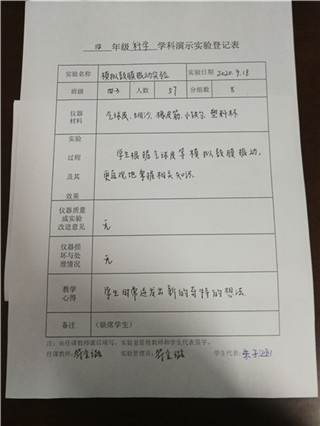 四 年级 科学 学科演示实验登记表
实验名称 模拟鼓膜振动实验 实验日期 2020.9.18
班级 四3 人数 57 分组数 8
仪器
材料 气球皮、细沙、橡皮筋、小铁勺、塑料杯
实验
过程 学生根据气球皮等模拟鼓膜振动,
及其 更直观地掌握相关知识。
效果
仪器质量
或实验
改进意见 无
仪器损
坏与处
理情况 无
教学
心得 学生时常迸发出新的奇特的想法
备注 (缺席学生)
注:由任课教师课后填写,实验室管理教师和学生代表签字。
任课教师: 实验管理员: 学生代表: